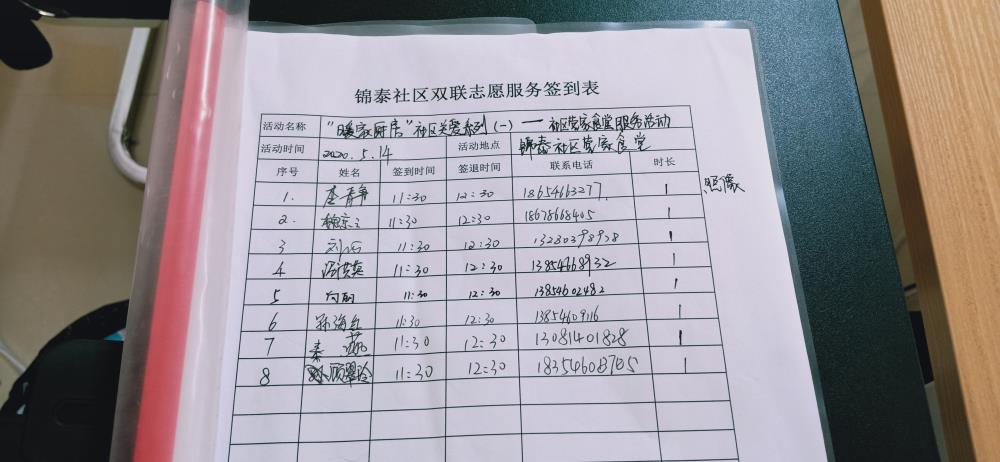 锦泰社区双联志愿服务签到表
活动名称 "暖家厨房"社区关爱系列(一)——社区党家食堂服务活动
活动时间 2020.5.14 活动地点 锦泰社区党家食堂
序号 姓名 签到时间 签退时间 联系电话 时长
1. 11:30 12:30 18654663277 1 照像
2. 11:30 12:30 18678668405 1
3 11:30 12:30 13280398928 1
4 11:30 12:30 13854668932 1
5 向丽 11:30 12:30 13854602482 1
6 孙海红 11:30 12:30 13854609116 1
7 秦 11:30 12:30 13081401828 1
8 顾翠玲 11:30 12:30 1